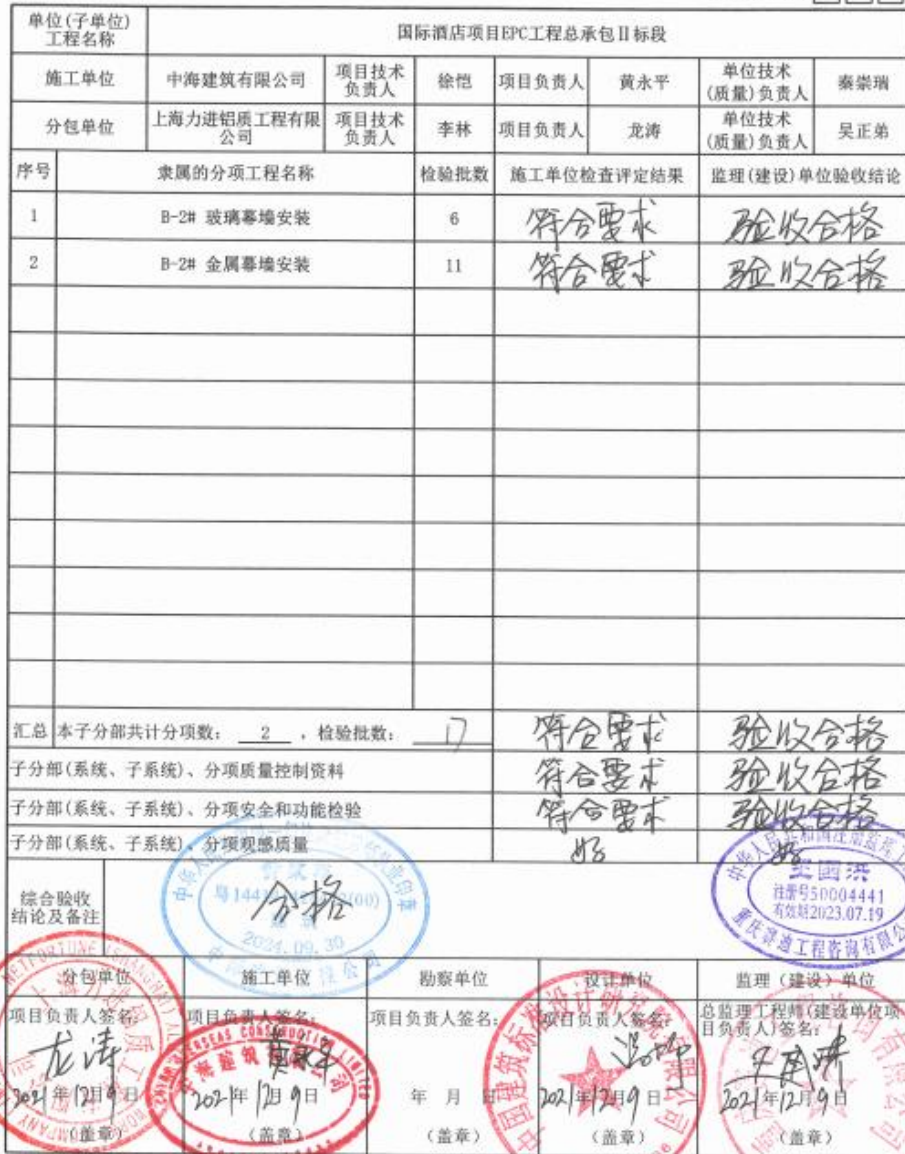 单位(子单位)工程名称 国际酒店项目EPC工程总承包Ⅱ标段
施工单位 中海建筑有限公司 项目技术负责人 徐恺 项目负责人 黄永平 单位技术(质量)负责人 秦崇瑞
分包单位 上海力进铝质工程有限公司 项目技术负责人 李林 项目负责人 龙涛 单位技术(质量)负责人 吴正弟
序号 隶属的分项工程名称 检验批数 施工单位检查评定结果 监理(建设)单位验收结论
1 B-2# 玻璃幕墙安装 6 符合要求 验收合格
2 B-2# 金属幕墙安装 11 符合要求 验收合格
汇总 本子分部共计分项数: 2 ,检验批数: 17 符合要求 验收合格
子分部(系统、子系统)、分项质量控制资料 符合要求 验收合格
子分部(系统、子系统)、分项安全和功能检验 符合要求 验收合格
子分部(系统、子系统)、分项观感质量 好 好
综合验收结论及备注 合格
2024.09.30
王国洪
注册号50004441
有效期2023.07.19
分包单位 施工单位 勘察单位 设计单位 监理(建设)单位
项目负责人签名: 项目负责人签名: 项目负责人签名: 项目负责人签名: 总监理工程师(建设单位项目负责人)签名:
龙涛
2021年12月9日 2021年12月9日 年 月 日 2021年12月9日 2021年12月9日
(盖章) (盖章) (盖章) (盖章) (盖章)